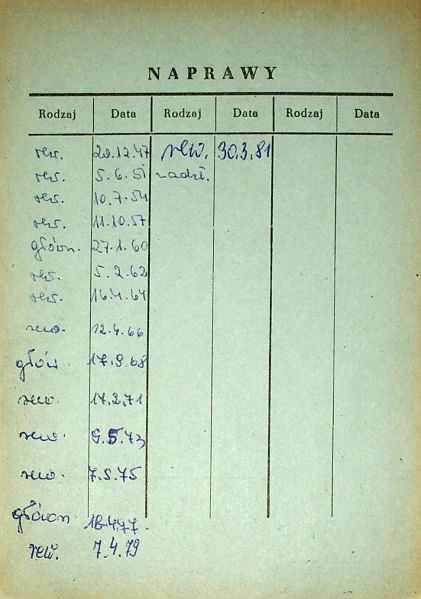 NAPRAWY
Rodzaj Data Rodzaj Data Rodzaj Data
rew. 20.12.47 rew. 30.3.81
rew. 5.6.51 nadzł.
rew. 10.7.54
rew. 11.10.57
główn. 27.1.60
rew. 5.2.62
rew. 16.4.64
rew. 12.4.66
główn 17.9.68
rew. 17.2.71
rew. 9.5.73
rew. 7.5.75
główn 18.4.77.
rew. 7.4.79